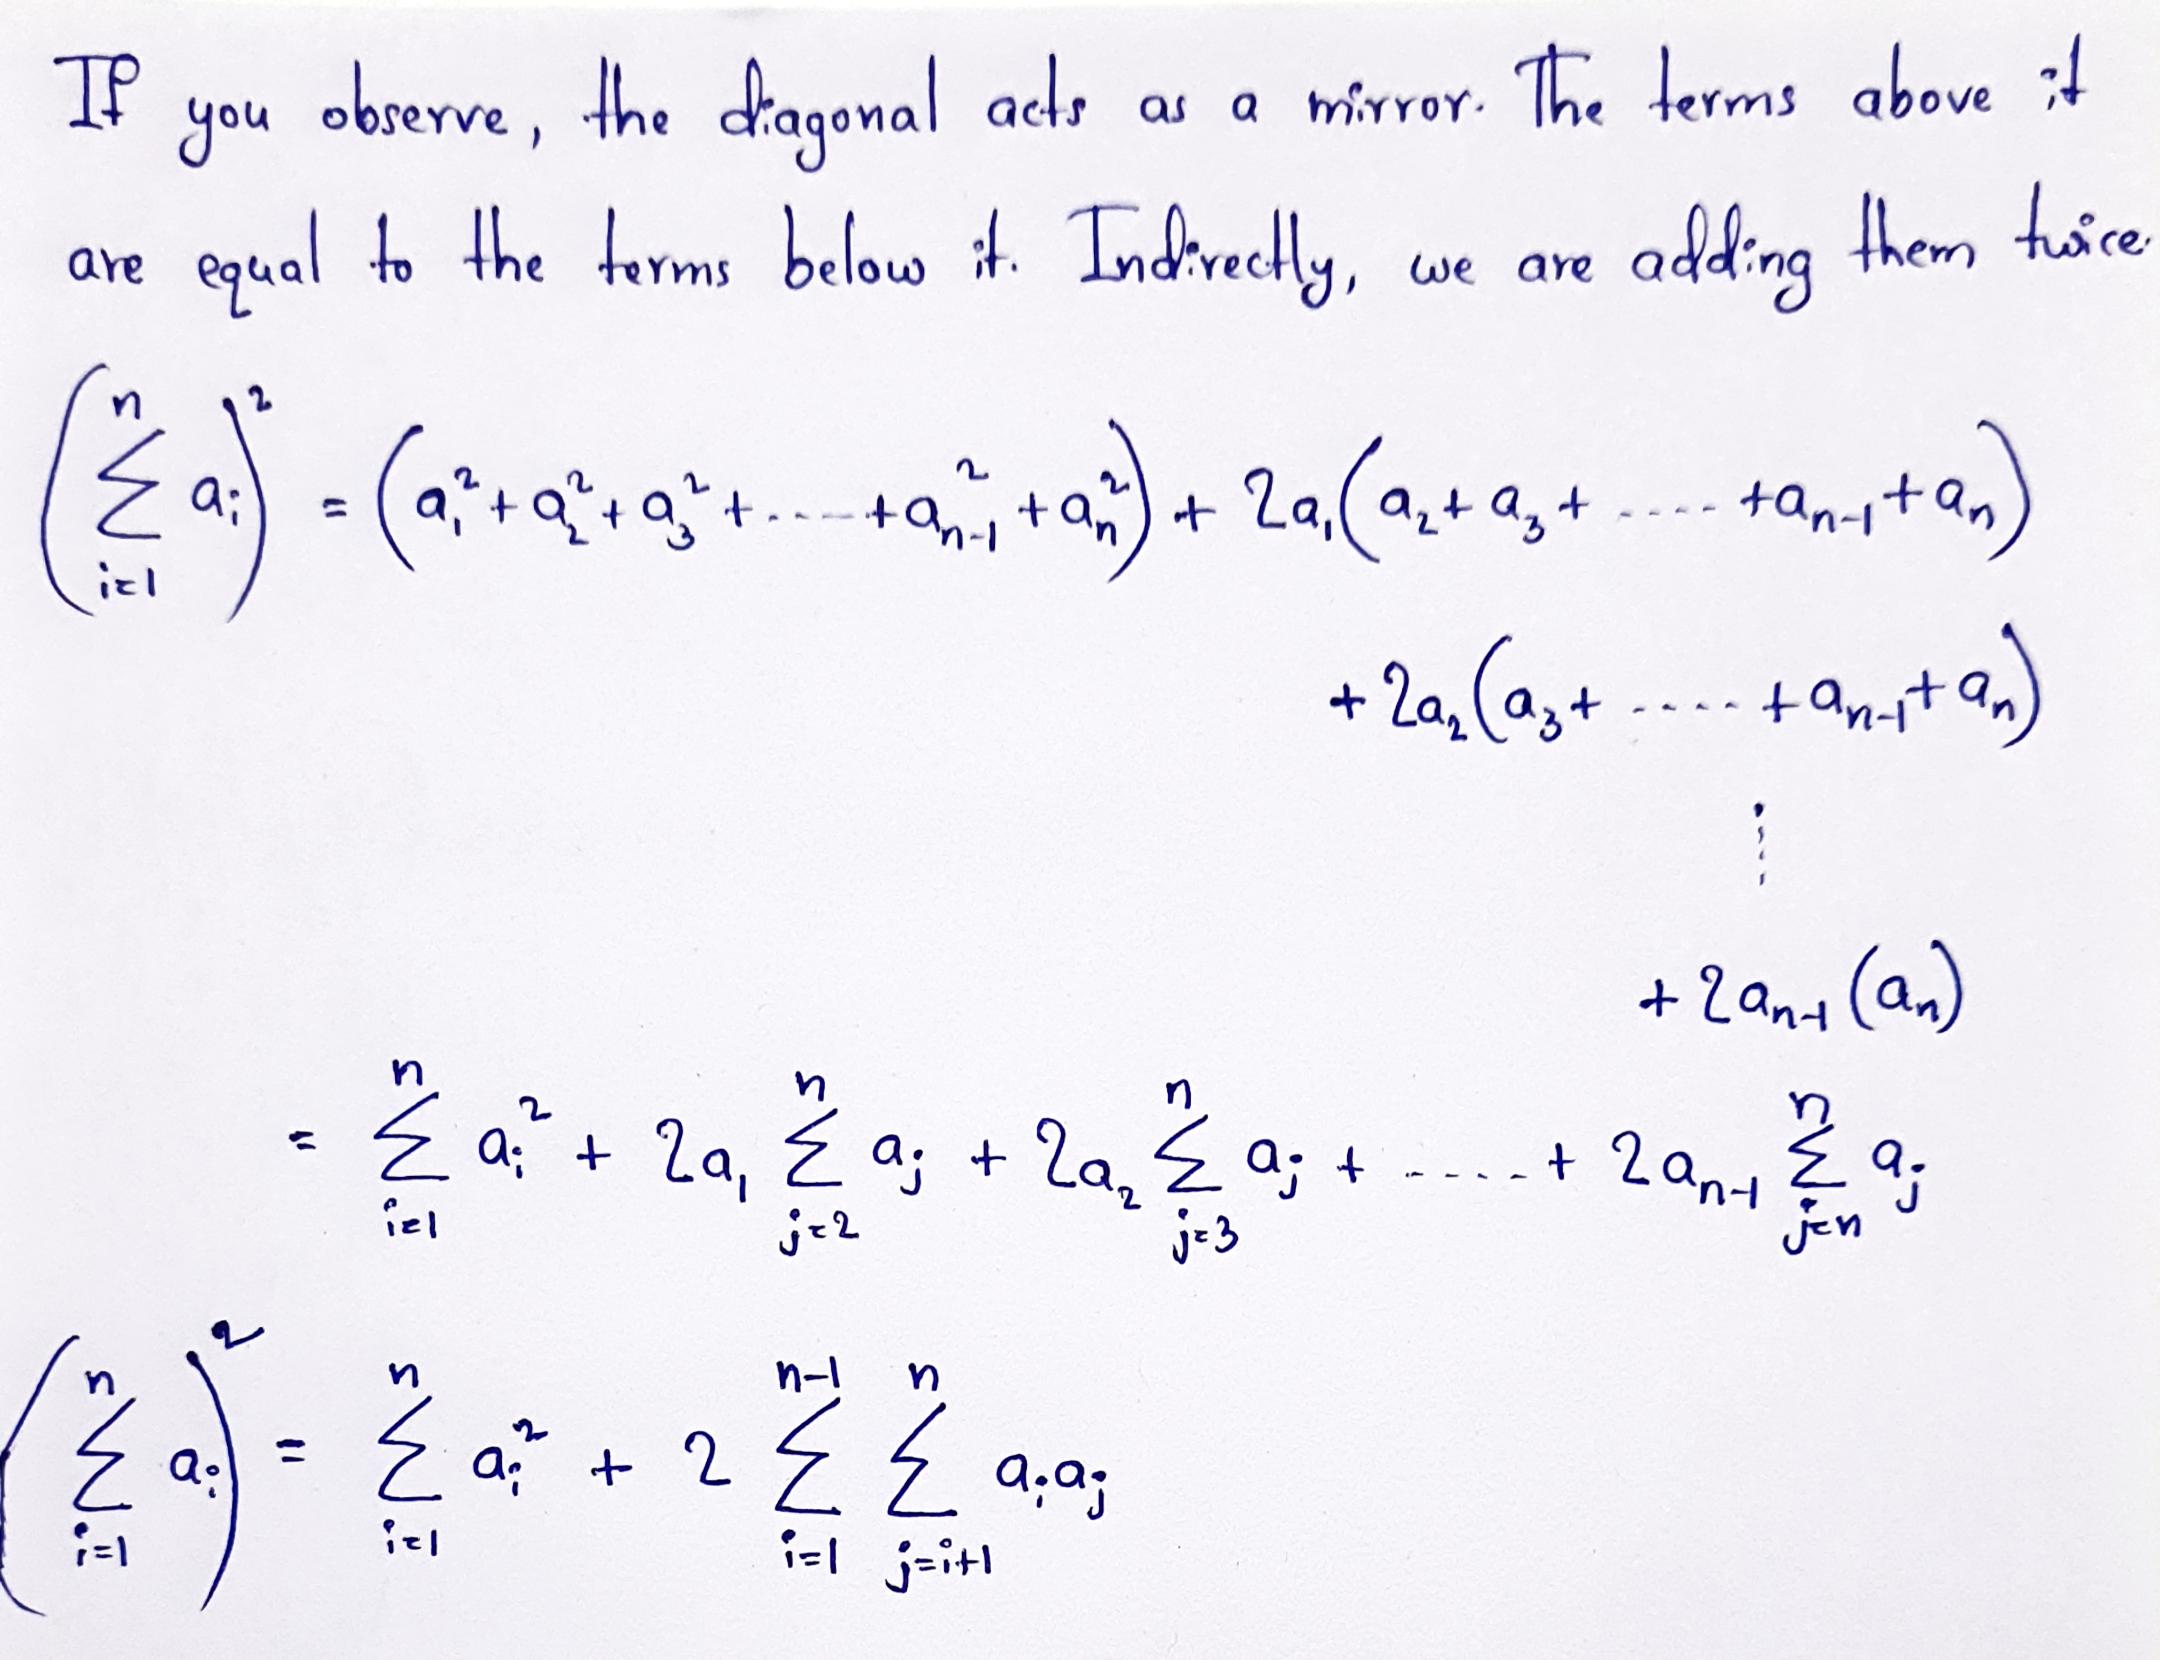 If you observe, the diagonal acts as a mirror. The terms above it
are equal to the terms below it. Indirectly, we are adding them twice.
(∑_{i=1}^{n} aᵢ)² = (a₁² + a₂² + a₃² + ..... + aₙ₋₁² + aₙ²) + 2a₁(a₂ + a₃ + ..... + aₙ₋₁ + aₙ)
+ 2a₂(a₃ + ..... + aₙ₋₁ + aₙ)
⋮
+ 2aₙ₋₁(aₙ)
= ∑_{i=1}^{n} aᵢ² + 2a₁ ∑_{j=2}^{n} aⱼ + 2a₂ ∑_{j=3}^{n} aⱼ + ..... + 2aₙ₋₁ ∑_{j=n}^{n} aⱼ
(∑_{i=1}^{n} aᵢ)² = ∑_{i=1}^{n} aᵢ² + 2 ∑_{i=1}^{n-1} ∑_{j=i+1}^{n} aᵢaⱼ